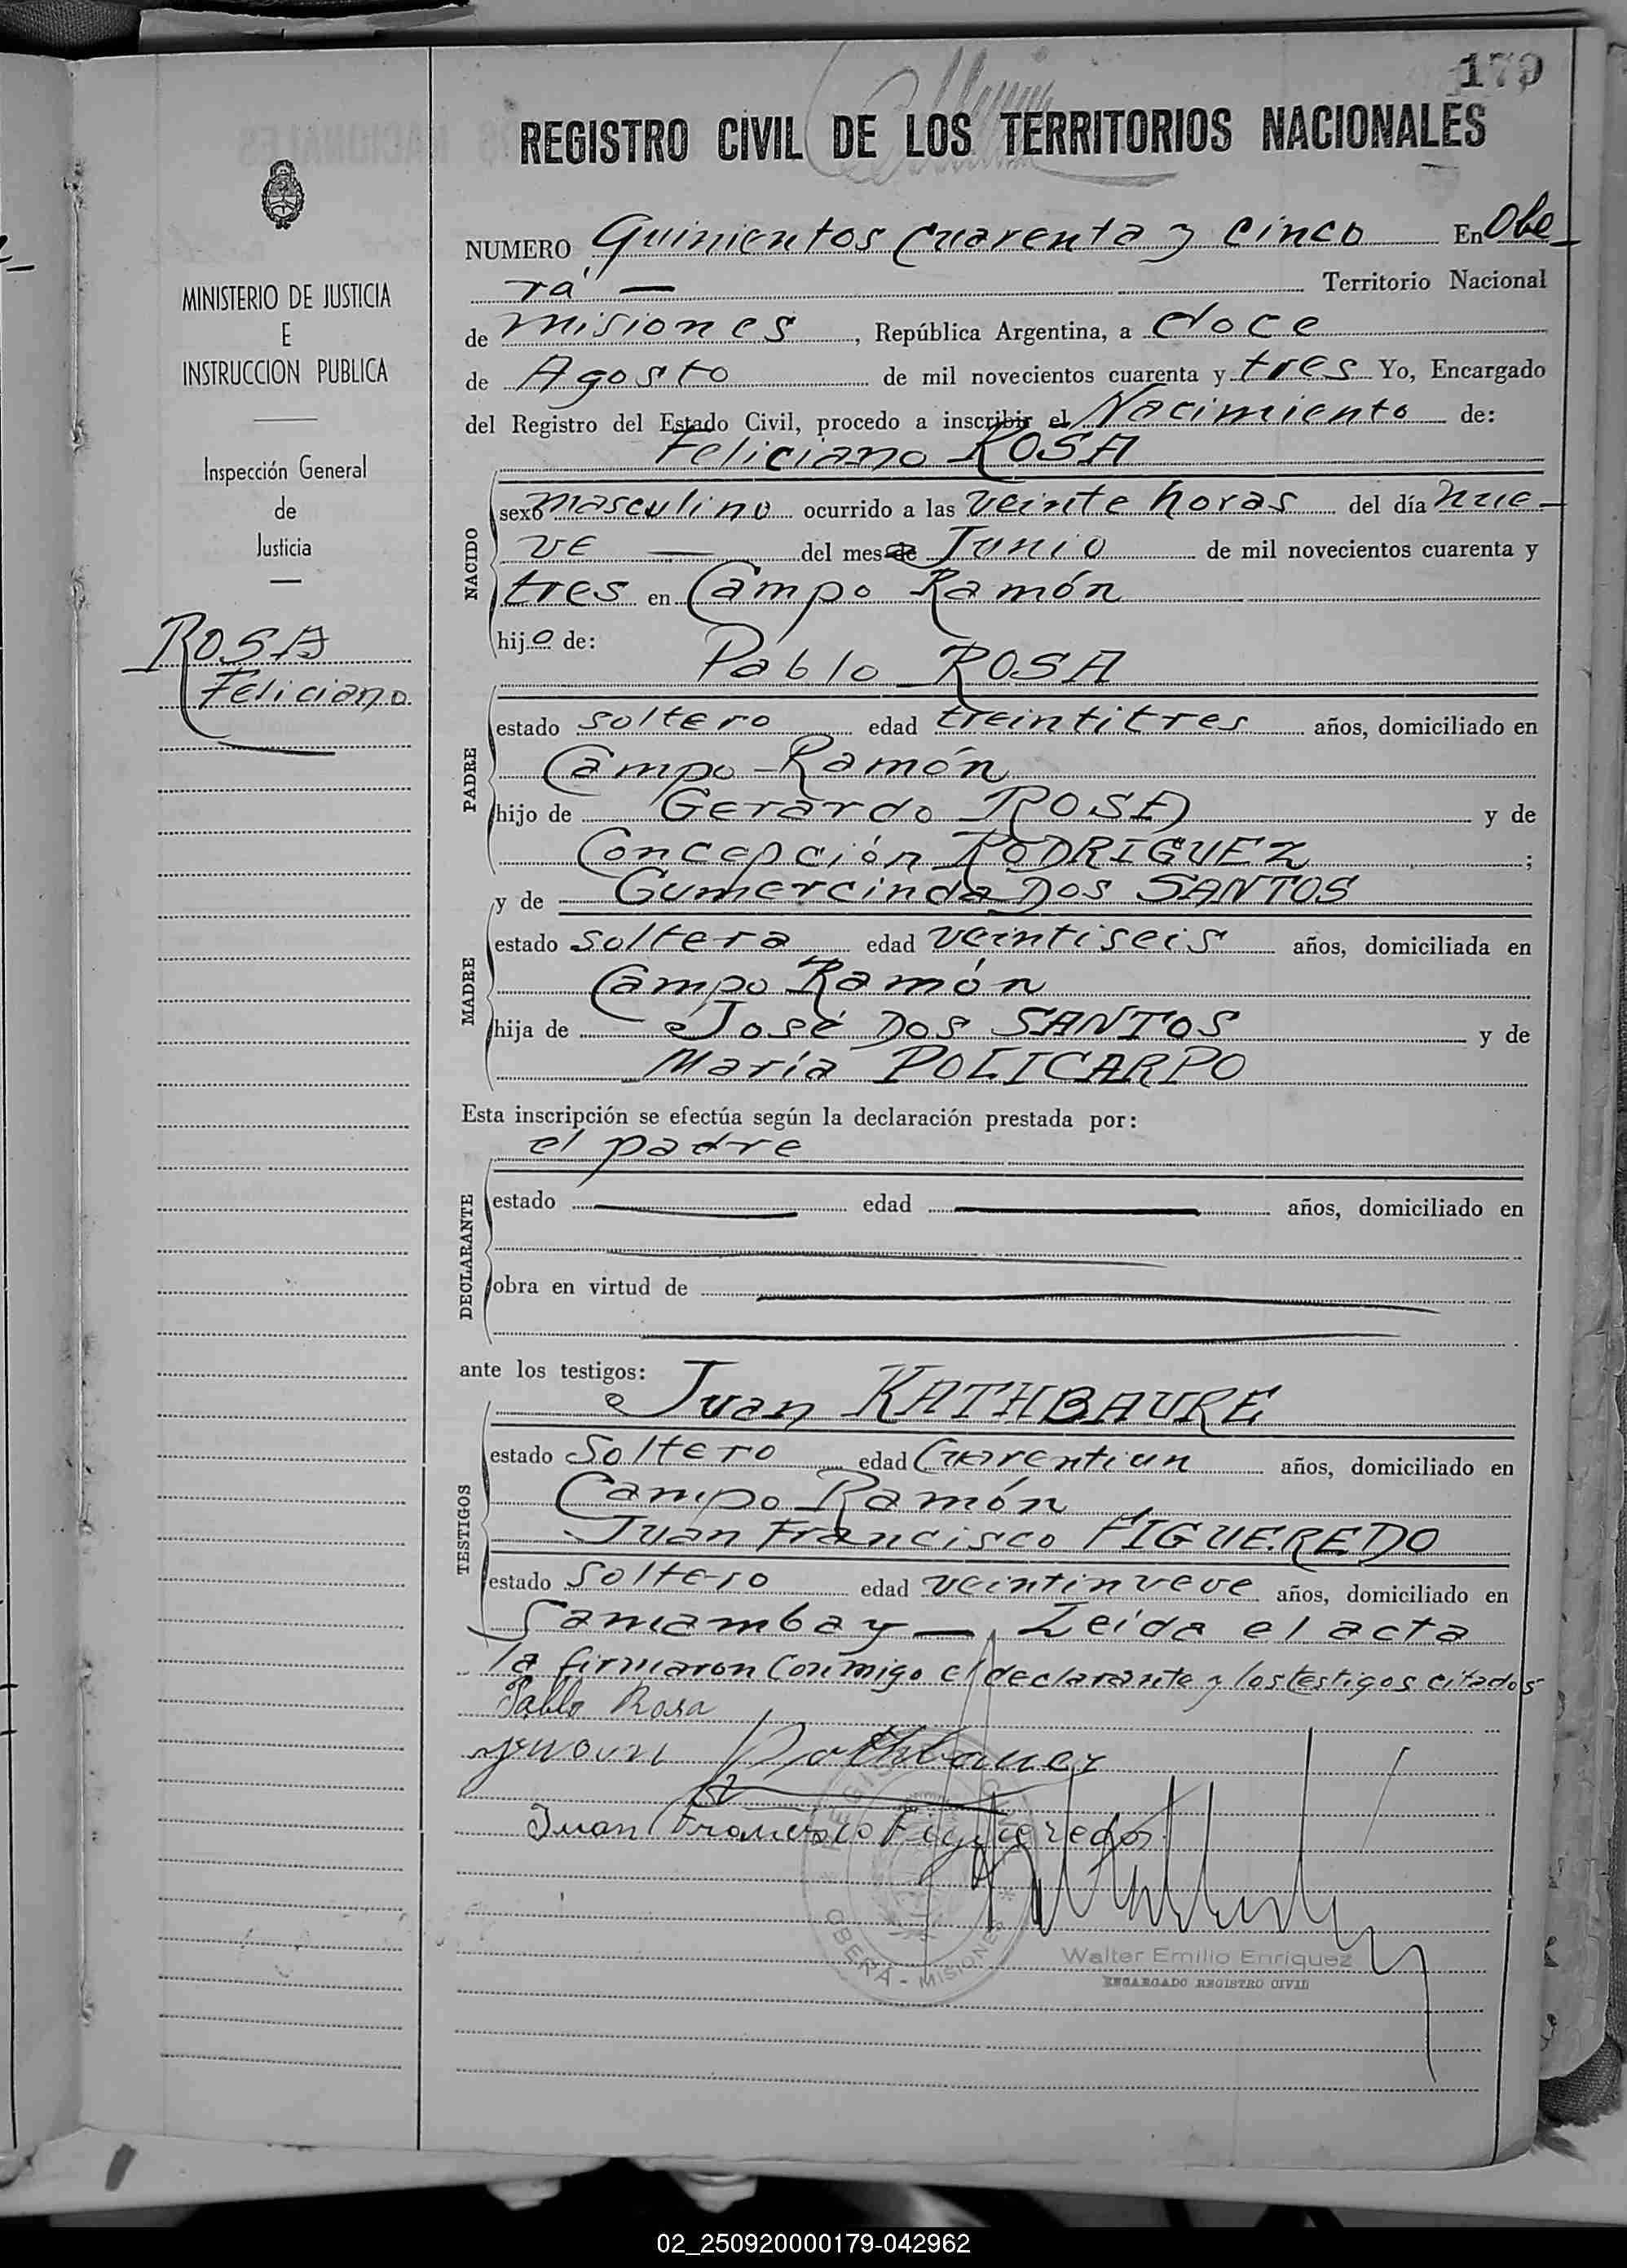 179
REGISTRO CIVIL DE LOS TERRITORIOS NACIONALES
MINISTERIO DE JUSTICIA
E
INSTRUCCION PUBLICA
Inspección General
de
Justicia
ROSA
Feliciano
NUMERO Quinientos cuarenta y cinco En Obe-
rá — Territorio Nacional
de Misiones, República Argentina, a doce
de Agosto de mil novecientos cuarenta y tres Yo, Encargado
del Registro del Estado Civil, procedo a inscribir el Nacimiento de:
Feliciano ROSA
NACIDO
sexo masculino ocurrido a las veinte horas del día nue-
ve — del mes de Junio de mil novecientos cuarenta y
tres en Campo Ramón
hijo de:
Pablo ROSA
PADRE
estado soltero edad treintitres años, domiciliado en
Campo Ramón
hijo de Gerardo ROSA y de
Concepción RODRIGUEZ ;
y de Gumercinda DOS SANTOS
MADRE
estado soltera edad veintiseis años, domiciliada en
Campo Ramón
hija de José DOS SANTOS y de
María POLICARPO
Esta inscripción se efectúa según la declaración prestada por:
el padre
DECLARANTE
estado edad años, domiciliado en
obra en virtud de
ante los testigos:
Juan KATHBAURE
TESTIGOS
estado soltero edad Cuarentiun años, domiciliado en
Campo Ramón
Juan Francisco FIGUEREDO
estado soltero edad veintinueve años, domiciliado en
Samambay — Leida el acta
la firmaron conmigo el declarante y los testigos citados
Pablo Rosa
Juan Francisco Figueredo
REGISTRO CIVIL
OBERÁ - MISIONES
Walter Emilio Enriquez
ENCARGADO REGISTRO CIVIL
02_250920000179-042962